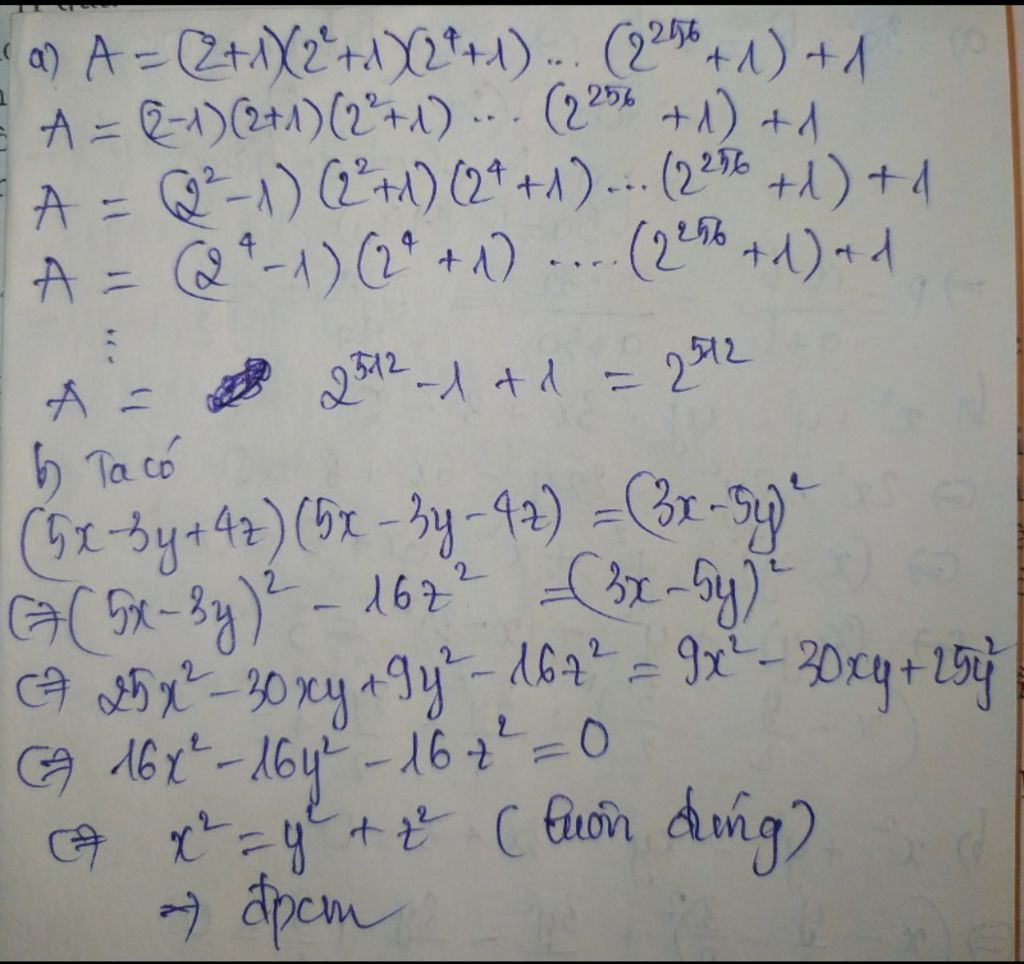 a) A = (2+1)(2²+1)(2⁴+1) ... (2²⁵⁶+1) + 1
A = (2-1)(2+1)(2²+1) ... (2²⁵⁶+1) + 1
A = (2²-1)(2²+1)(2⁴+1) ... (2²⁵⁶+1) + 1
A = (2⁴-1)(2⁴+1) .... (2²⁵⁶+1) + 1
⋮
A = 2⁵¹² - 1 + 1 = 2⁵¹²
b) Ta có
(5x-3y+4z)(5x-3y-4z) = (3x-5y)²
<=> (5x-3y)² - 16z² = (3x-5y)²
<=> 25x² - 30xy + 9y² - 16z² = 9x² - 30xy + 25y²
<=> 16x² - 16y² - 16z² = 0
<=> x² = y² + z² (luôn đúng)
=> đpcm